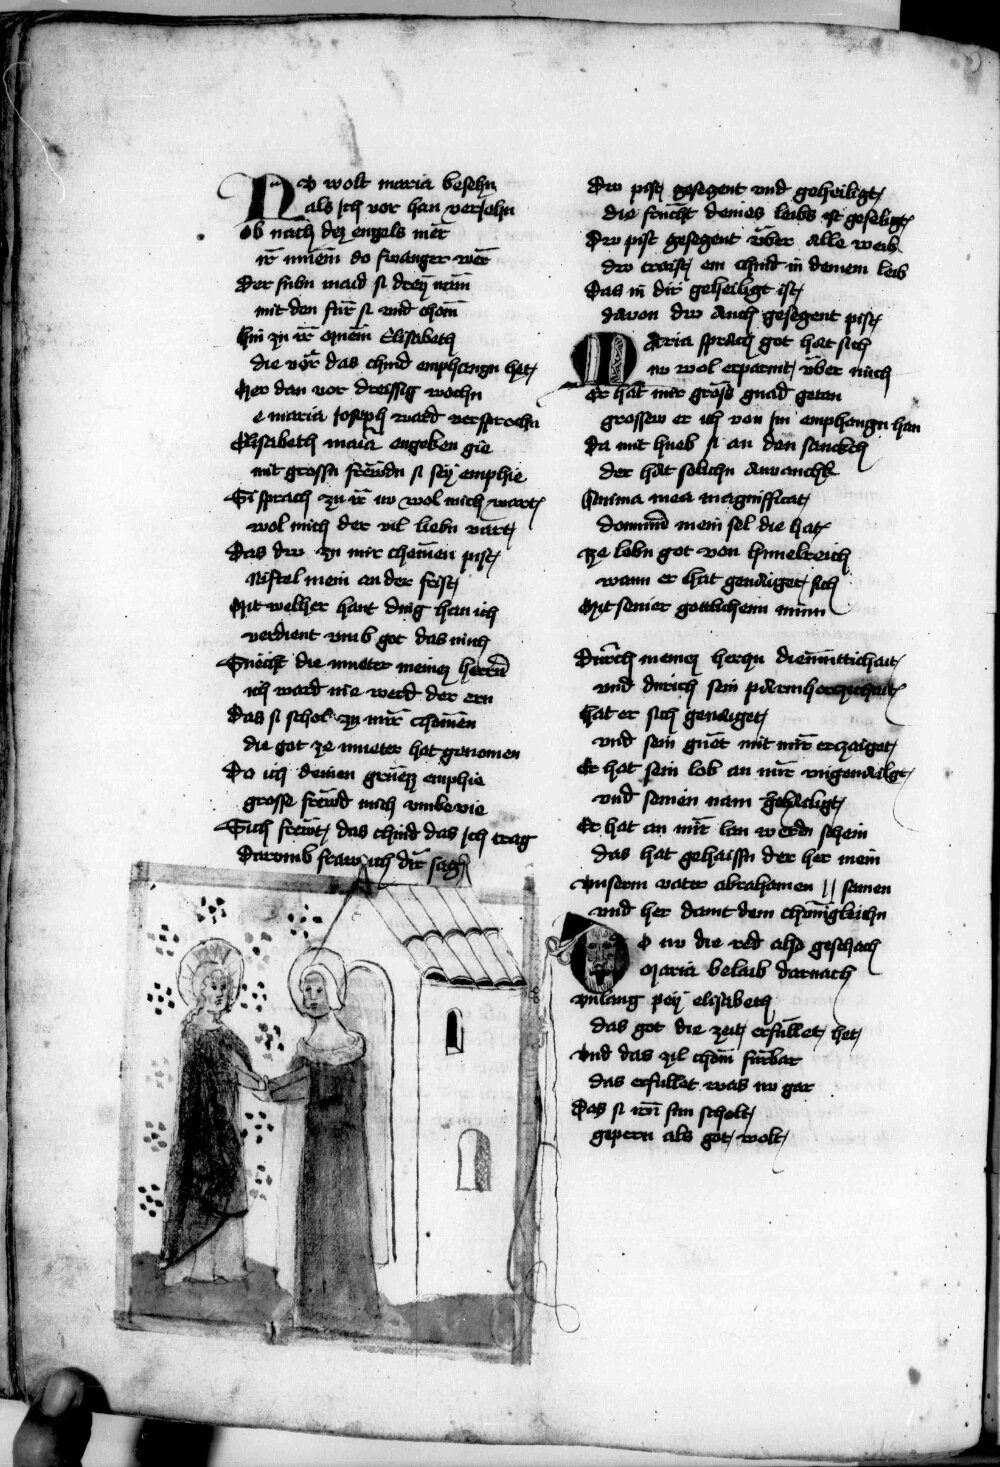 Nv wolt maria besehn
als ich vor han veriehn
Ob nach dez engels mer
ir mvem do swanger wer
Der subn maid si dreÿ nam
mit den fur si vnd chom
Hin zu ir mvem Elisabeth
die vor das chind emphangn het
Mer dan vor dreissig wochn
e maria Joseph ward versprochn
Elisabeth maria engeben gie
mit grossn frewdn si seÿ emphie
Si sprach zu ir nv wol mich wart
wol mich der vil liebn vart
Das dw zu mir chomen pist
Niftel mein an der frist
Mit welher hant ding han ich
verdient vmb got das mich
Suecht die mueter meinez herrn
ich ward nie werd der ern
Das si schol zu mir chomen
die got ze mueter hat genomen
Do ich deinen gruezz emphie
grosse frewd mich vmbevie
Sich frewt das chind das ich trag
Darvmb fraw ich dir sag
Dw pist gesegent vnd geheiligt
die frucht deines leibs ist geseligt
Dw pist gesegent vber alle weib
dw traist ein chind in deinem leib
Das in dir geheiligt ist
davon dw auch gesegent pist
Maria sprach got hat sich
nv wol erparmt vber mich
Er hat mir gross gnad getan
grossew er ich von im emphangn han
Da mit hueb si an den sanckch
der hat solichn anvanchk
Anima mea magnifficat
dominum mein sel die hat
Ze lobn got von himelreich
wann er hat genaiget sich
Mit seiner gotlichenn minn
Durch meinez herczn diemuttichait
vnd durich sein parmherczichait
Hat er sich genaiget
vnd sein guet mit mir erzaiget
Er hat sein lob an mir vngemailgt
vnd seinen nam gehailigt
Er hat an mir lan werdn schein
das hat gehaissn der her mein
Vnserm vater abrahamen || samen
vnd her damt dem chomgleichn
Do nv die red also geschach
Maria belaib darnach
Vnlang peÿ elisabeth
das got die zeit erfullet het
Vnd das zil chom furbar
das erfullet was nv gar
Das si irn sun scholt
gepern als got wolt